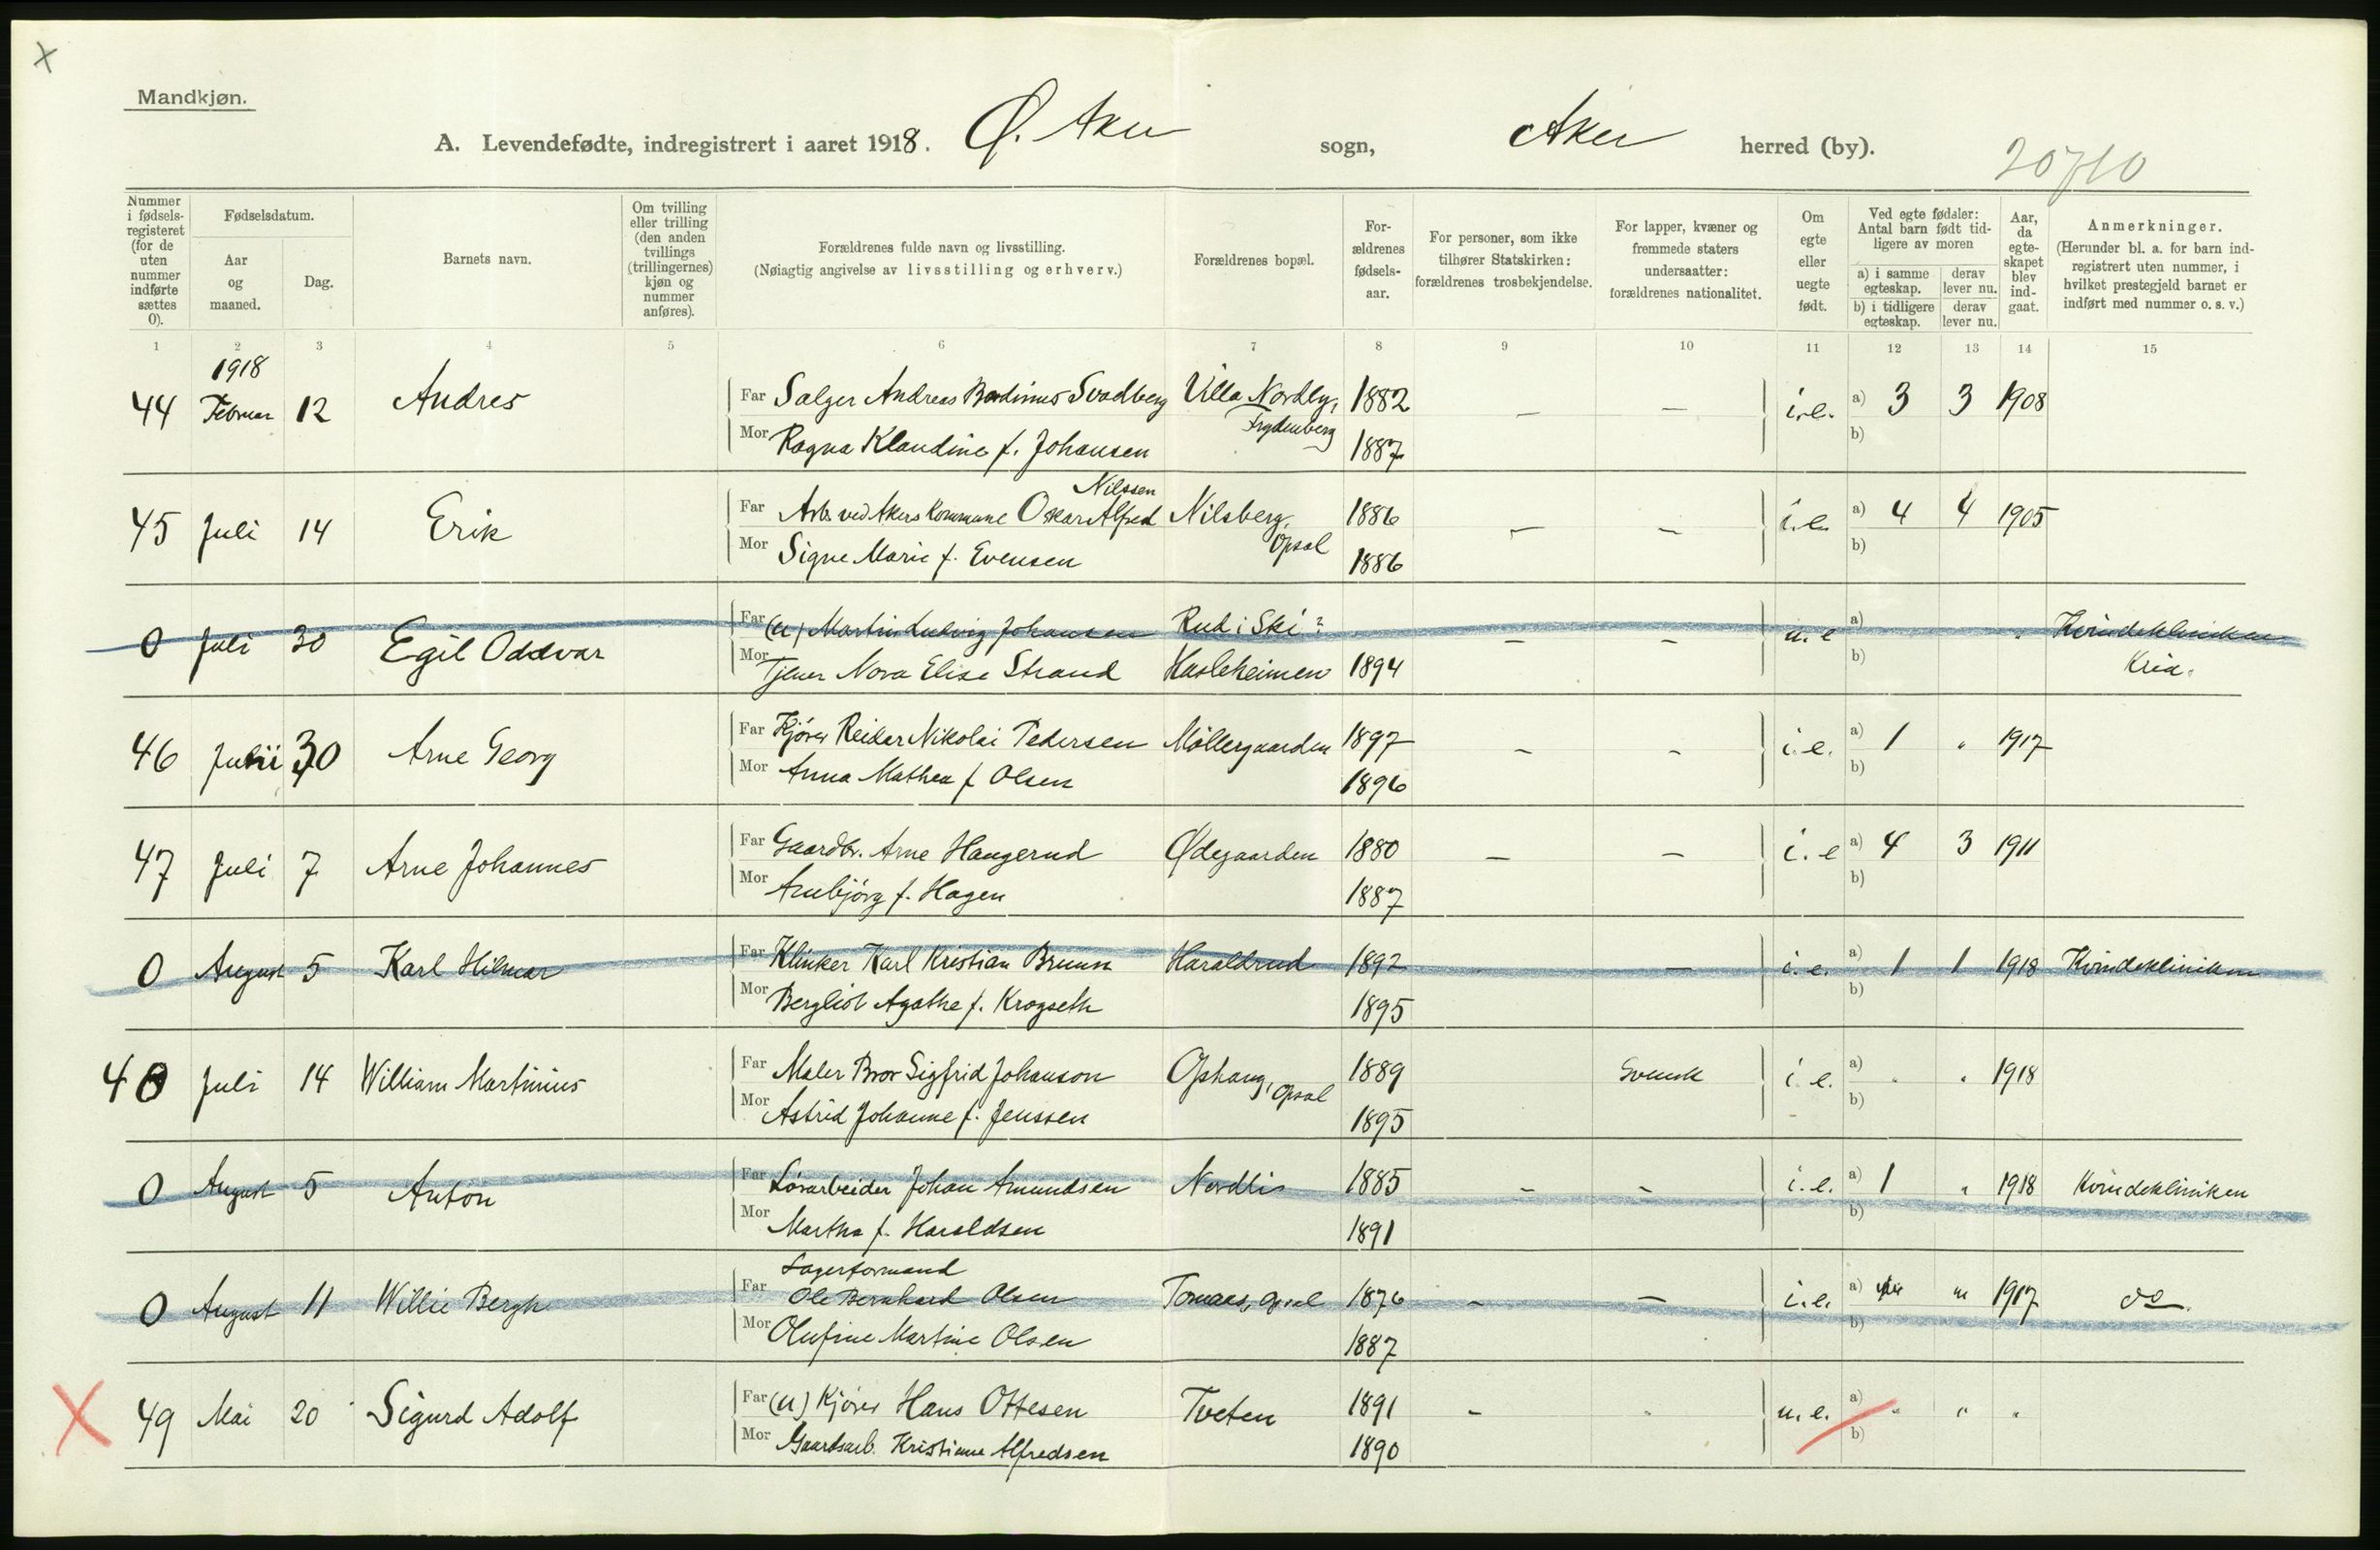 X
Mandkjøn.
A. Levendefødte, indregistrert i aaret 1918. Ø. Aker sogn, Aker herred (by).
20710
Nummer i fødsels-registeret (for de uten nummer indførte sættes 0).
Fødselsdatum.
Aar og maaned.
Dag.
Barnets navn.
Om tvilling eller trilling (den anden tvillings (trillingernes) kjøn og nummer anføres).
Forældrenes fulde navn og livsstilling.
(Nøiagtig angivelse av livsstilling og erhverv.)
Forældrenes bopæl.
For-ældrenes fødsels-aar.
For personer, som ikke tilhører Statskirken: forældrenes trosbekjendelse.
For lapper, kvæner og fremmede staters undersaatter: forældrenes nationalitet.
Om egte eller uegte født.
Ved egte fødsler: Antal barn født tid-ligere av moren
a) i samme egteskap. derav lever nu.
b) i tidligere egteskap. derav lever nu.
Aar, da egte-skapet blev ind-gaat.
Anmerkninger.
(Herunder bl. a. for barn ind-registrert uten nummer, i hvilket prestegjeld barnet er indført med nummer o. s. v.)
1 2 3 4 5 6 7 8 9 10 11 12 13 14 15
1918
44 Februar 12 Andres Far Andreas Svadberg Villa Nordby, 1882 — — i.e. a) 3 3 1908
Frydenberg
Mor Ragna Klaudine f. Johansen 1887 b)
Nilssen
45 Juli 14 Erik Far Arb. ved Akers Kommune Oskar Alfred Nilsberg, 1886 — — i.e. a) 4 4 1905
Opsal
Mor Signe Marie f. Evensen 1886 b)
0 Juli 30 Egil Oddvar Far (u) Martin Ludvig Johansen Rud i Ski? — — u.e a) Kvindekliniken
Mor Tjener Nora Elise Strand Hasleheimen 1894 b) Kria.
46 Juli 30 Arne Georg Far Kjører Reidar Nikolai Pedersen Møllergaarden 1897 — - i.e. a) 1 " 1917
Mor Anna Mathea f. Olsen 1896 b)
47 Juli 7 Arne Johannes Far Gaardbr. Arne Haugerud Ødegaarden 1880 — — i.e a) 4 3 1911
Mor Arnbjørg f. Hagen 1887 b)
0 August 5 Karl Hilmar Far Klinker Karl Kristian Bruun Haraldrud 1892 — i.e. a) 1 1 1918 Kvindekliniken
Mor Bergliot Agathe f. Krogseth 1895 b)
48 Juli 14 William Martinius Far Maler Bror Sigfrid Johanson Ophaug, Opsal 1889 Svensk i.e. a) " " 1918
Mor Astrid Johanne f. Jenssen 1895 b)
0 August 5 Anton Far Løsarbeider Johan Amundsen Nordli 1885 - - i.e. a) 1 " 1918 Kvindekliniken
Mor Martha f. Haraldsen 1891 b)
Lagerformand
0 August 11 Willie Bergh Far Ole Bernhard Olsen Opsal 1876 - — i.e. a) " 1917 do.
Mor Olufine Martine Olsen 1887 b)
X 49 Mai 20 Sigurd Adolf Far (u) Kjører Hans Ottesen Tveten 1891 - u.e. a) " " "
Mor Gaardsarb. Kristiane Alfredsen 1890 b)